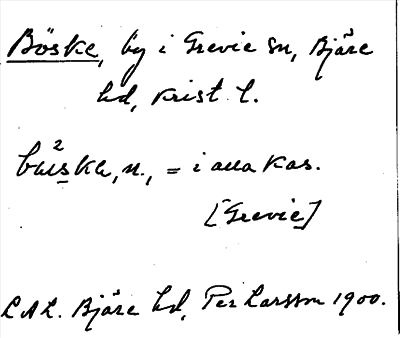 Böske, by i Grevie sn, Bjäre
hd, Krist. l.
n., = i alla kas.
[Grevie]
LAL. Bjäre hd, Per Larsson 1900.